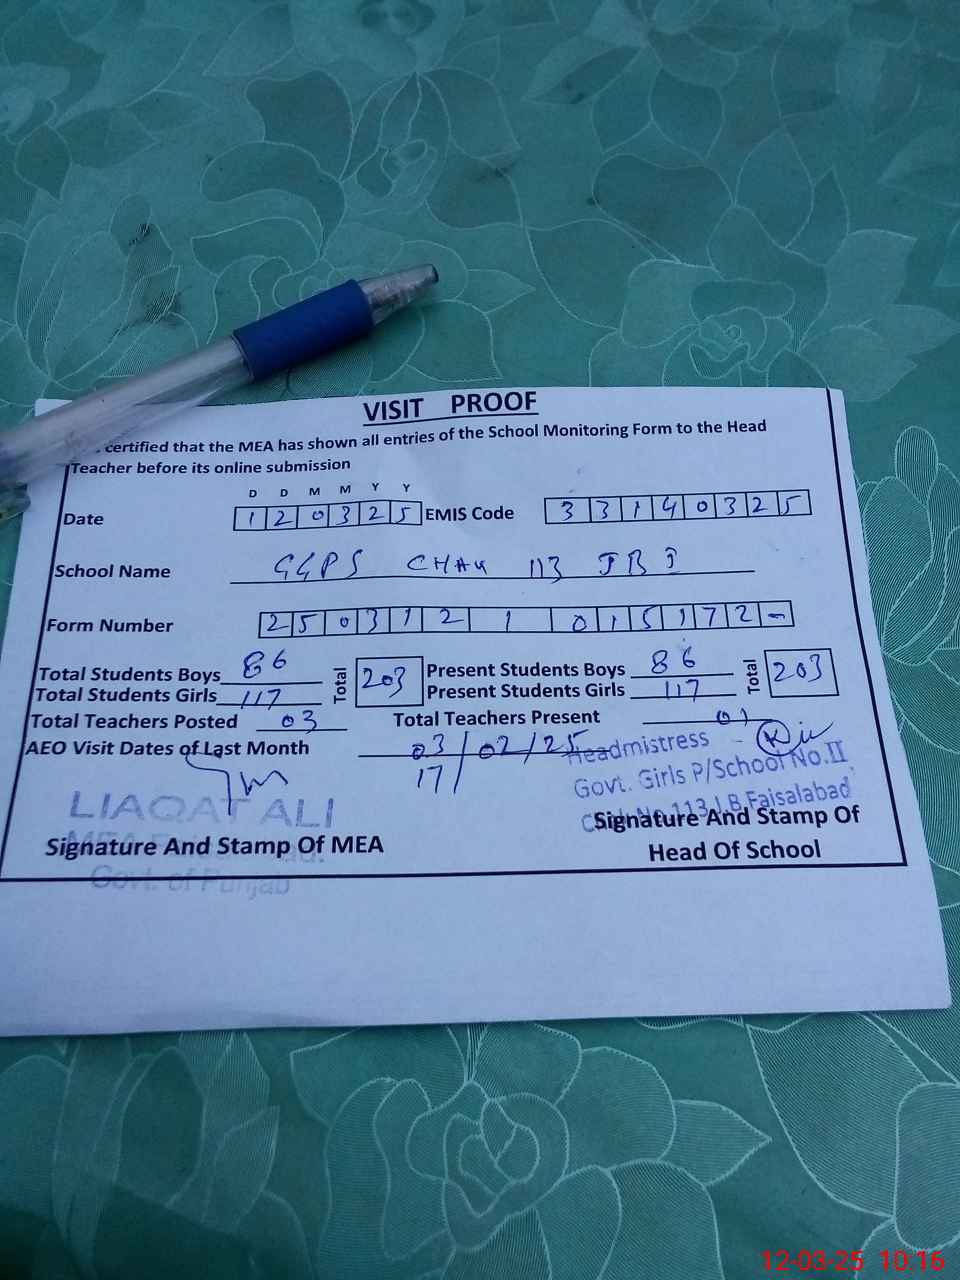 VISIT PROOF
certified that the MEA has shown all entries of the School Monitoring Form to the Head
Teacher before its online submission
D D M M Y Y
Date 1 2 0 3 2 5 EMIS Code 3 3 1 4 0 3 2 5
School Name GGPS CHAK 113 JB I
Form Number 2 5 0 3 1 2 1 0 1 5 1 7 2 -
Total Students Boys 86 Total 203 Present Students Boys 86 Total 203
Total Students Girls 117 Present Students Girls 117
Total Teachers Posted 03 Total Teachers Present
AEO Visit Dates of Last Month 03/02/25
17/
Headmistress
Govt. Girls P/School No.II
113 J.B Faisalabad
LIAQAT ALI
Signature And Stamp Of MEA
Govt. of Punjab
Signature And Stamp Of
Head Of School
12-03-25 10:16